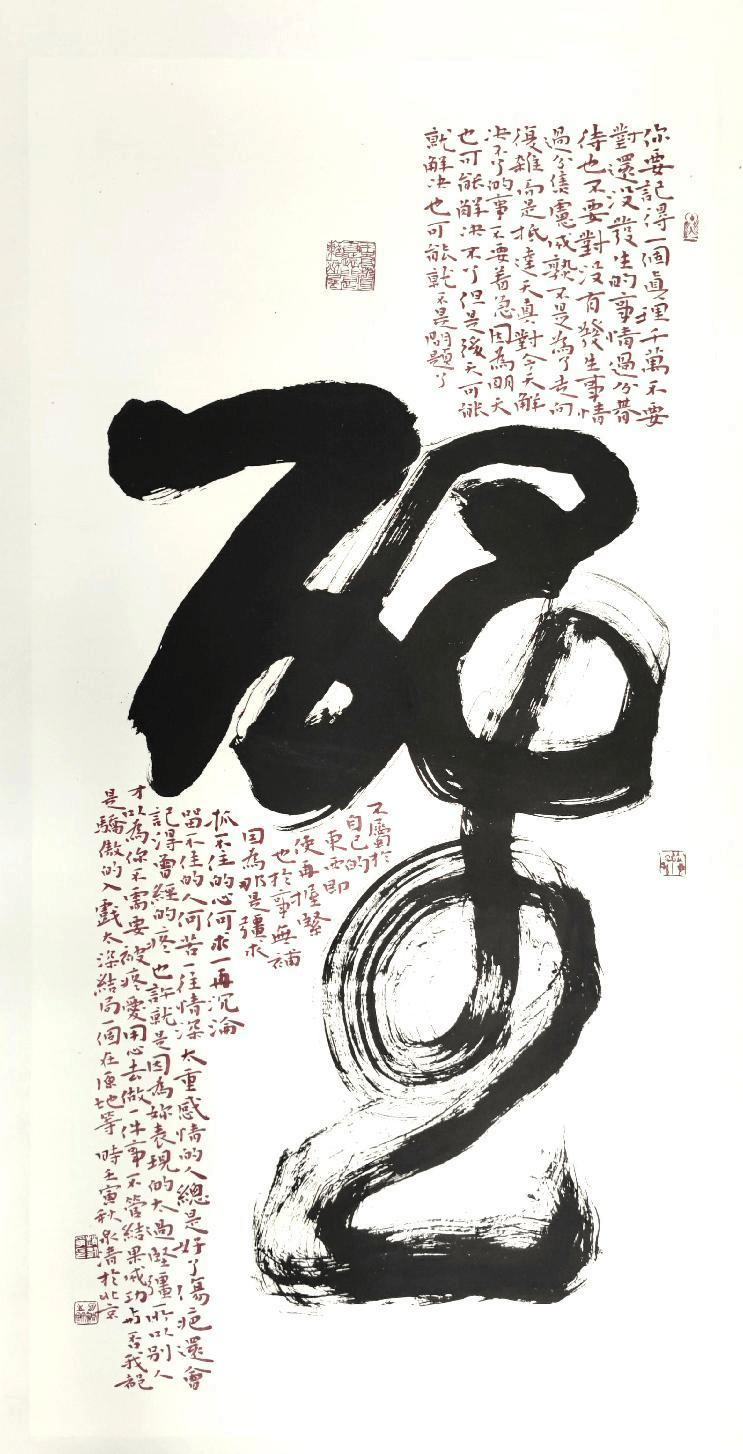 你要記得一個真理千萬不要
對還没發生的事情過分
待也不要對没有發生事情
過分焦慮成熟不是為了走向
復雜而是抵達天真對今天解
决不了的事不要着急因為明天
也可能解决不了但是後天可能
就解决也可能就不是問題了
不屬於
自己的
東西即
使再握緊
也於事無補
因為那是彊求
抓不住的心何求一再沉淪
留不住的人何苦一往情深太重感情的人總是好了傷疤還會
記得曾經的疼也許就是因為妳表現的太過堅彊所以別人
才以為你不需要被疼愛用心去做一件事不管結果成功與否我
是驕傲的入戲太深結局一個在原地等時壬寅秋泉清於北京